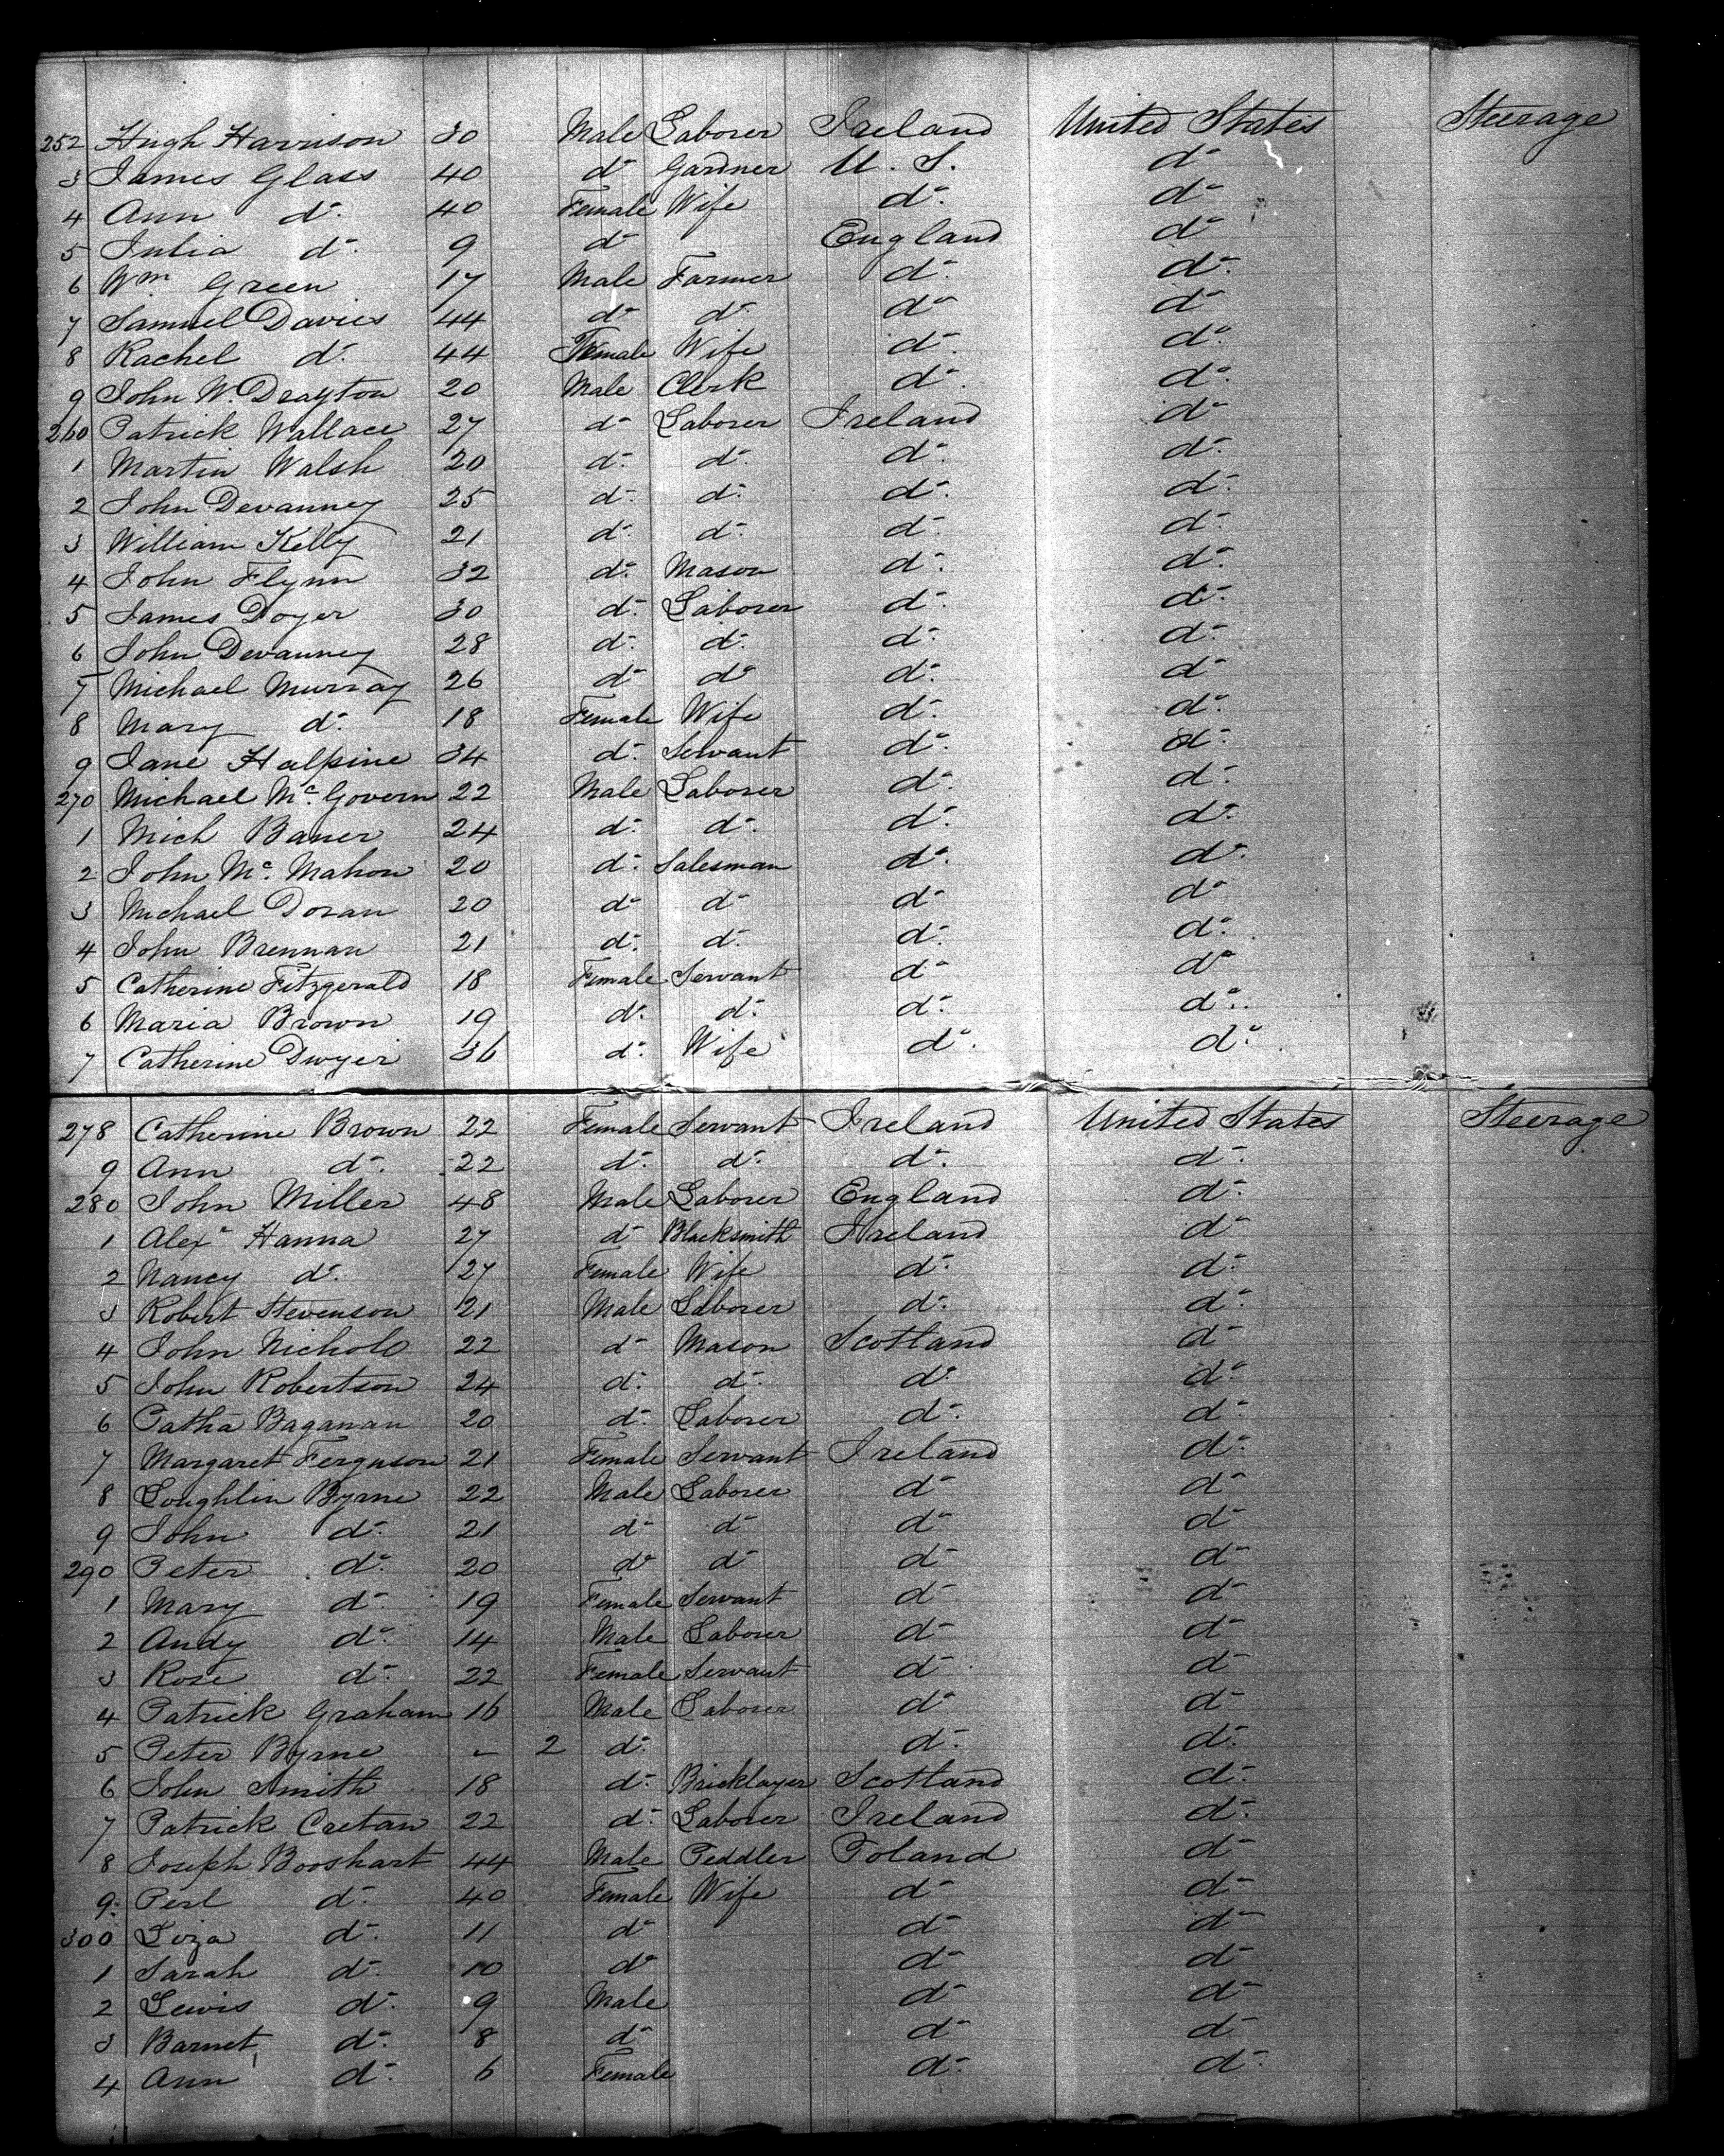 252 Hugh Harrison 30 Male Laborer Ireland United States Steerage
3 James Glass 40 do Gardner U. S. do
4 Ann do 40 Female Wife do do
5 Julia do 9 do England do
6 Wm Green 17 Male Farmer do do
7 Samuel Davies 44 do do do do
8 Rachel do 44 Female Wife do do
9 John W. Drayton 20 Male Clerk do do
260 Patrick Wallace 27 do Laborer Ireland do
1 Martin Walsh 20 do do do do
2 John Devanney 25 do do do do
3 William Kelly 21 do do do do
4 John Flynn 32 do Mason do do
5 James Doyer 30 do Laborer do do
6 John Devanney 28 do do do do
7 Michael Murray 26 do do do do
8 Mary do 18 Female Wife do do
9 Jane Halpine 34 do Servant do do
270 Michael Mc. Govern 22 Male Laborer do do
1 Mich Baner 24 do do do do
2 John Mc. Mahon 20 do Salesman do do
3 Michael Doran 20 do do do do
4 John Brennan 21 do do do do
5 Catherine Fitzgerald 18 Female Servant do do
6 Maria Brown 19 do do do do
7 Catherine Dwyer 36 do Wife do do
278 Catherine Brown 22 Female Servant Ireland United States Steerage
9 Ann do 22 do do do do
280 John Miller 48 Male Laborer England do
1 Alexr Hanna 27 do Blacksmith Ireland do
2 Nancy do 27 Female Wife do do
3 Robert Stevenson 21 Male Laborer do do
4 John Nichols 22 do Mason Scotland do
5 John Robertson 24 do do do do
6 Patha Baganan 20 do Laborer do do
7 Margaret Ferguson 21 Female Servant Ireland do
8 Loughlin Byrne 22 Male Laborer do do
9 John do 21 do do do do
290 Peter do 20 do do do do
1 Mary do 19 Female Servant do do
2 Andy do 14 Male Laborer do do
3 Rose do 22 Female Servant do do
4 Patrick Graham 16 Male Laborer do do
5 Peter Byrne - 2 do do do
6 John Smith 18 do Bricklayer Scotland do
7 Patrick Cretan 22 do Laborer Ireland do
8 Joseph Booshart 44 Male Peddler Poland do
9 Perl do 40 Female Wife do do
300 Liza do 11 do do do
1 Sarah do 10 do do do
2 Lewis do 9 Male do do
3 Barnet do 8 do do do
4 Ann do 6 Female do do